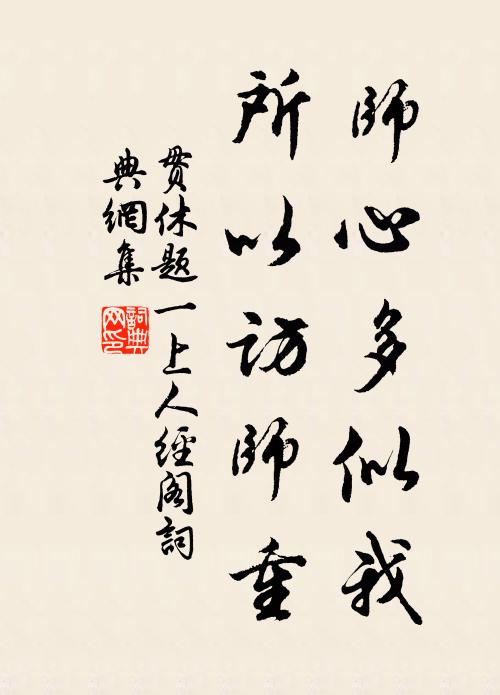 師心多似我
所以訪師重
貫休题一上人經阁詞
典網集
詞典
网印